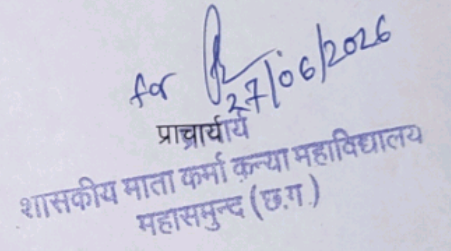 for
27/06/2026
प्राचार्य
शासकीय माता कर्मा कन्या महाविद्यालय
महासमुन्द (छ.ग.)